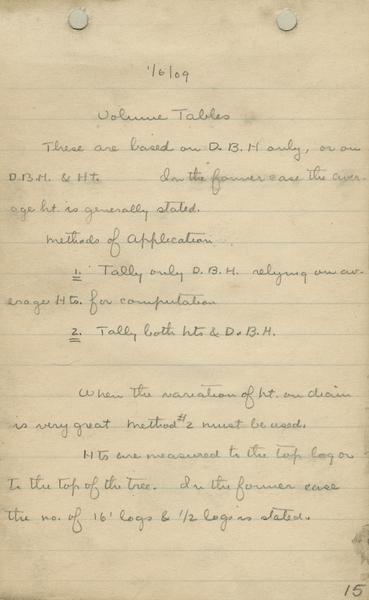 1/6/09
Volume Tables
These are based on D.B.H only, or on
D.B.H. & Ht. In the former case the aver-
age ht. is generally stated.
Methods of Application
1. Tally only D.B.H. relying on av-
erage Hts. for computation
2. Tally both hts & D.B.H.
When the variation of ht. on diam
is very great Method #2 must be used.
Hts are measured to the top log or
to the top of the tree. In the former case
the no. of 16' logs & 1/2 logs is stated.
15